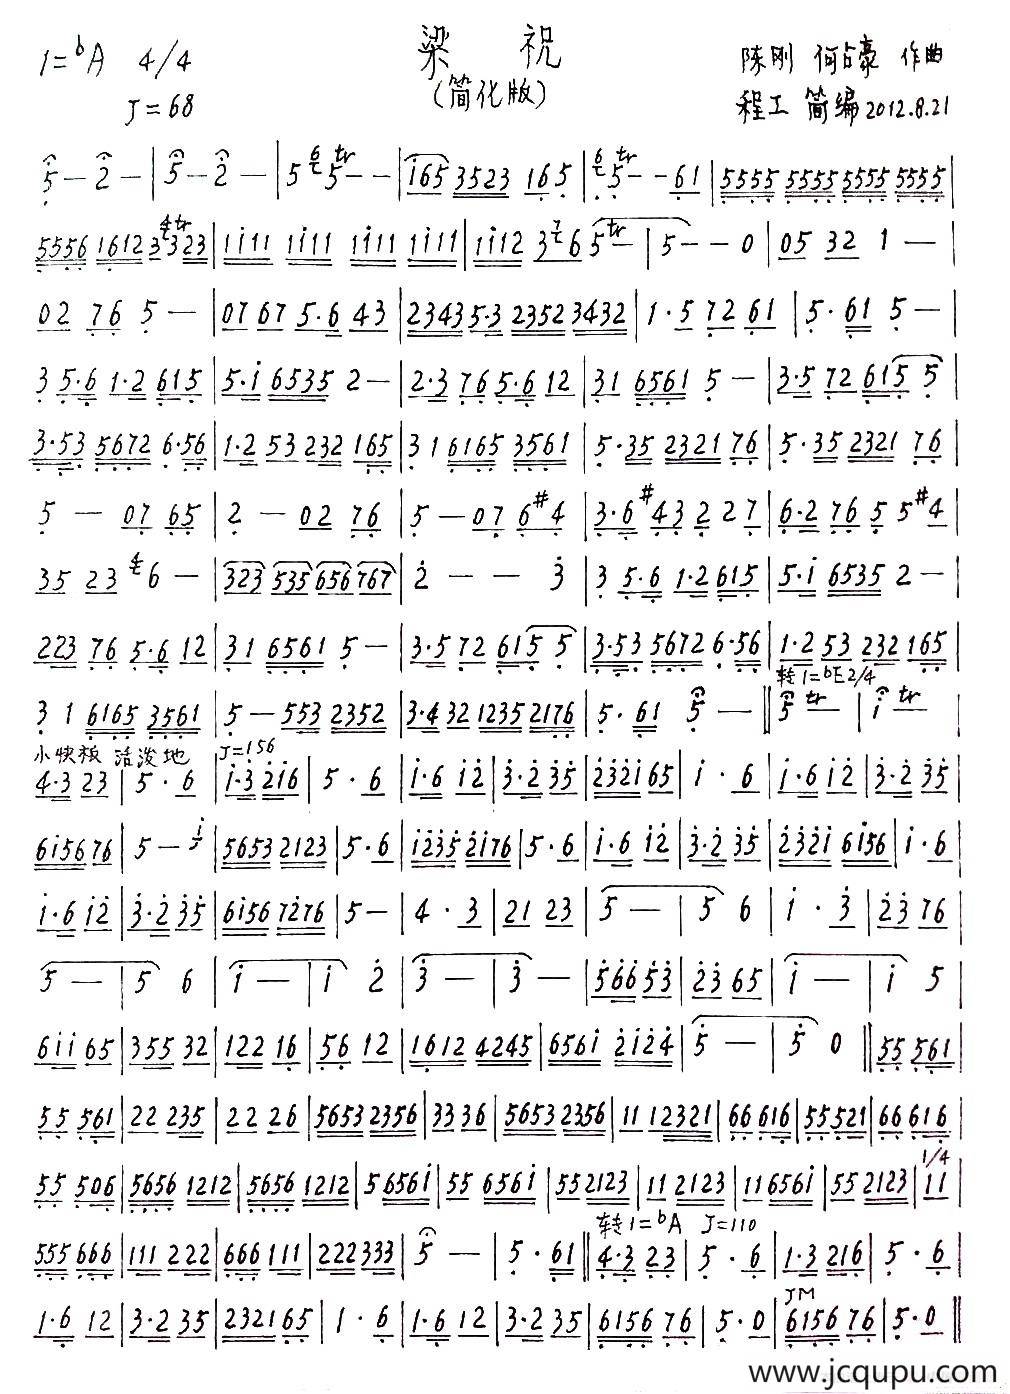 1=bA 4/4
梁祝
陈刚 何占豪 作曲
♩=68
(简化版)
程工 简编2012.8.21
5 - 2 - | 5 - 2 - | 5 6 5 tr - - | i65 3523 165 | 6 5 tr - - 61 | 5555 5555 5555 5555 |
5556 1612 3 4 3 tr 23 | 1i11 1i11 1i11 1i11 | 1i12 3 7 6 5 tr - | 5 - - 0 | 05 32 1 - |
02 76 5 - | 07 67 5·6 43 | 2343 5·3 2352 3432 | 1·5 72 61 | 5·61 5 - |
3 5·6 1·2 615 | 5·i 6535 2 - | 2·3 76 5·6 12 | 31 6561 5 - | 3·5 72 615 5 |
3·53 5672 6·56 | 1·2 53 232 165 | 3 1 6165 3561 | 5·35 2321 76 | 5·35 2321 76 |
5 - 07 65 | 2 - 02 76 | 5 - 07 6#4 | 3·6 #43 2 2 7 | 6·2 76 5 5#4 |
35 23 4 6 - | 323 535 656 767 | 2 - - 3 | 3 5·6 1·2 615 | 5·i 6535 2 - |
223 76 5·6 12 | 31 6561 5 - | 3·5 72 615 5 | 3·53 5672 6·56 | 1·2 53 232 165 |
转1=bE 2/4
3 1 6165 3561 | 5 - 553 2352 | 3·4 32 1235 2176 | 5·61 5 - || 5 tr - | i tr - |
小快板 活泼地 ♩=156
4·3 23 | 5·6 | i·3 2i6 | 5·6 | i·6 i2 | 3·2 35 | 232i 65 | i·6 | i·6 i2 | 3·2 35 |
6i56 76 | 5 - i | 5653 2123 | 5·6 | i235 2i76 | 5·6 | i·6 i2 | 3·2 35 | 232i 6i56 | i·6 |
i·6 i2 | 3·2 35 | 6i56 7276 | 5 - | 4·3 | 21 23 | 5 - | 5 6 | i·3 | 23 76 |
5 - | 5 6 | i - | i 2 | 3 - | 3 - | 566 53 | 23 65 | i - | i 5 |
6ii 65 | 355 32 | 122 16 | 56 12 | 1612 4245 | 656i 2i24 | 5 - | 5 0 || 55 561 |
55 561 | 22 235 | 22 26 | 5653 2356 | 33 36 | 5653 2356 | 11 12321 | 66 616 | 55 521 | 66 616 |
1/4
55 506 | 5656 1212 | 5656 1212 | 5 656i | 55 656i | 55 2123 | 11 2123 | 11 656i | 55 2123 | 11 |
转1=bA ♩=110
555 666 | 111 222 | 666 111 | 222 333 | 5 - | 5·61 || 4·3 23 | 5·6 | 1·3 216 | 5·6 |
JM
1·6 12 | 3·2 35 | 2321 65 | 1·6 | 1·6 12 | 3·2 35 | 6156 76 | 5·0 | 6156 76 | 5·0 ||
www.jcqupu.com